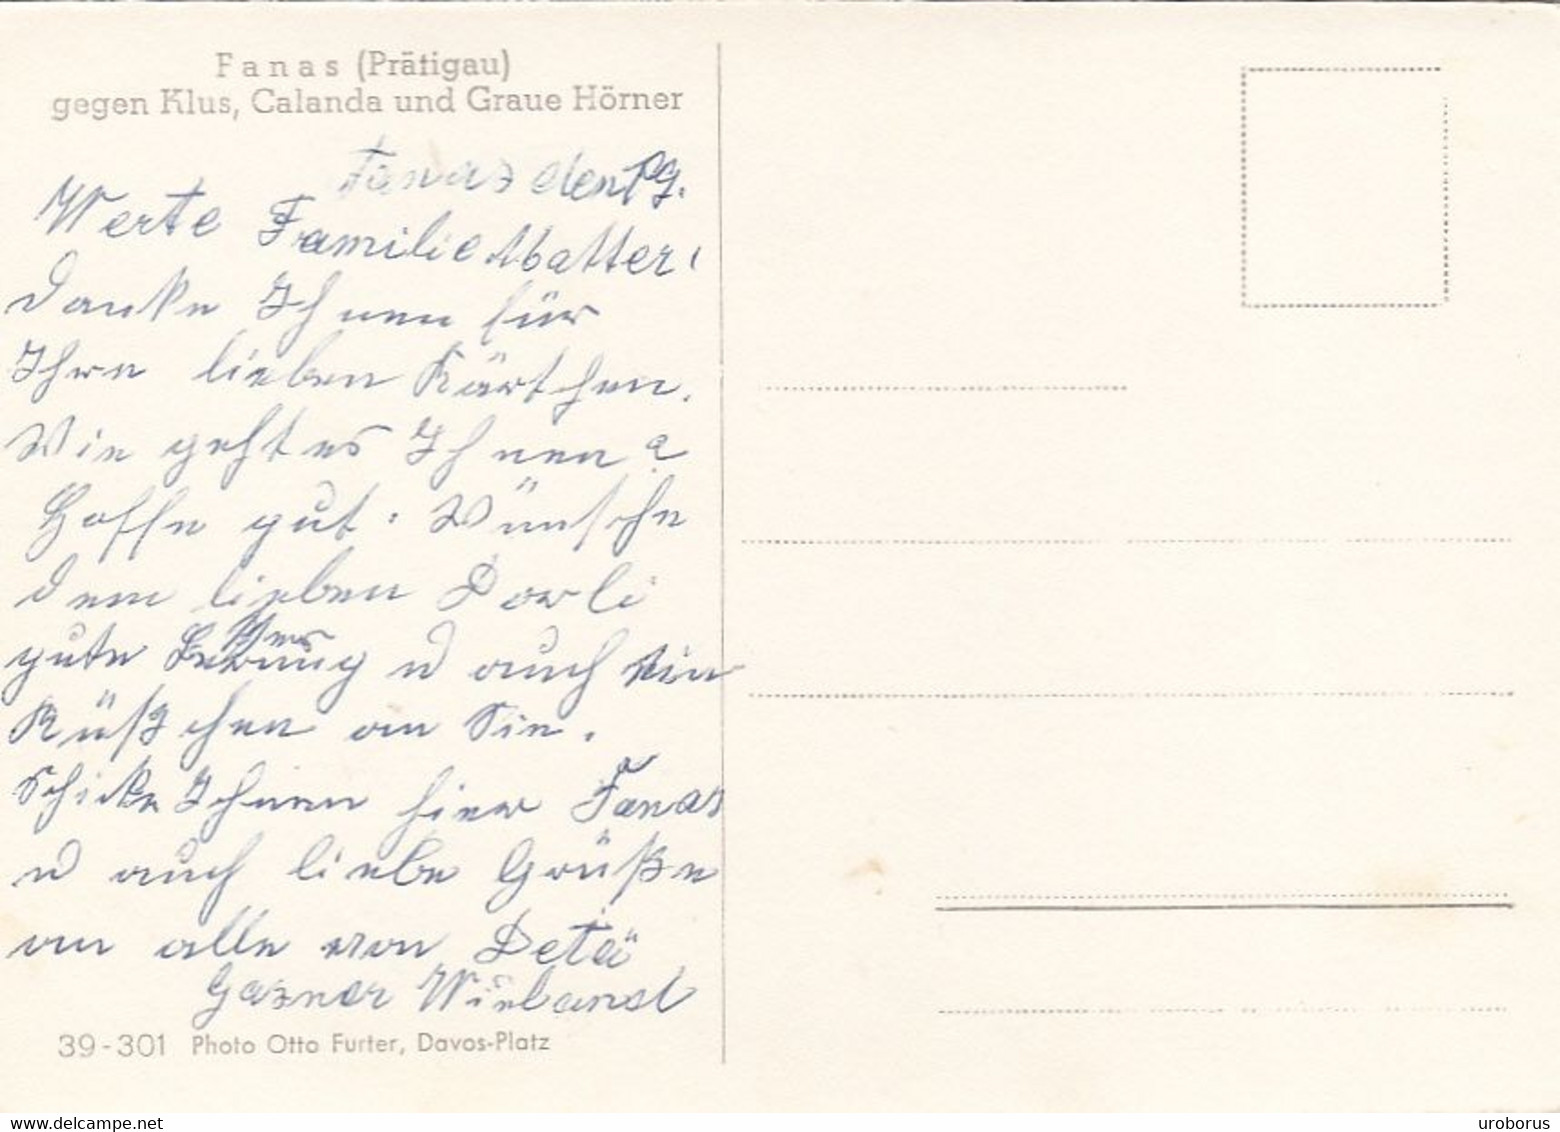 Fanas (Prätigau)
gegen Klus, Calanda und Graue Hörner
Fanas den
Werte Familie Abatter!
Danke Ihnen für
Ihre lieben Kärtchen.
Wie geht es Ihnen?
Hoffe gut. Wünsche
dem lieben Dorli
gute Besserung u auch ein
Küßchen an Sie.
Schicke Ihnen hier Fanas
u auch liebe Grüße
an alle von Deta
Gazner Wieland
39-301 Photo Otto Furter, Davos-Platz
delcampe.net
uroborus